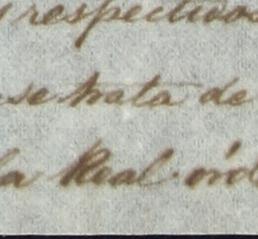 y respectivos
se trata de
la Real órd